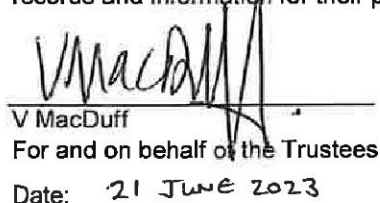 records and information for their p
VMacDuff
V MacDuff
For and on behalf of the Trustees
Date: 21 JUNE 2023